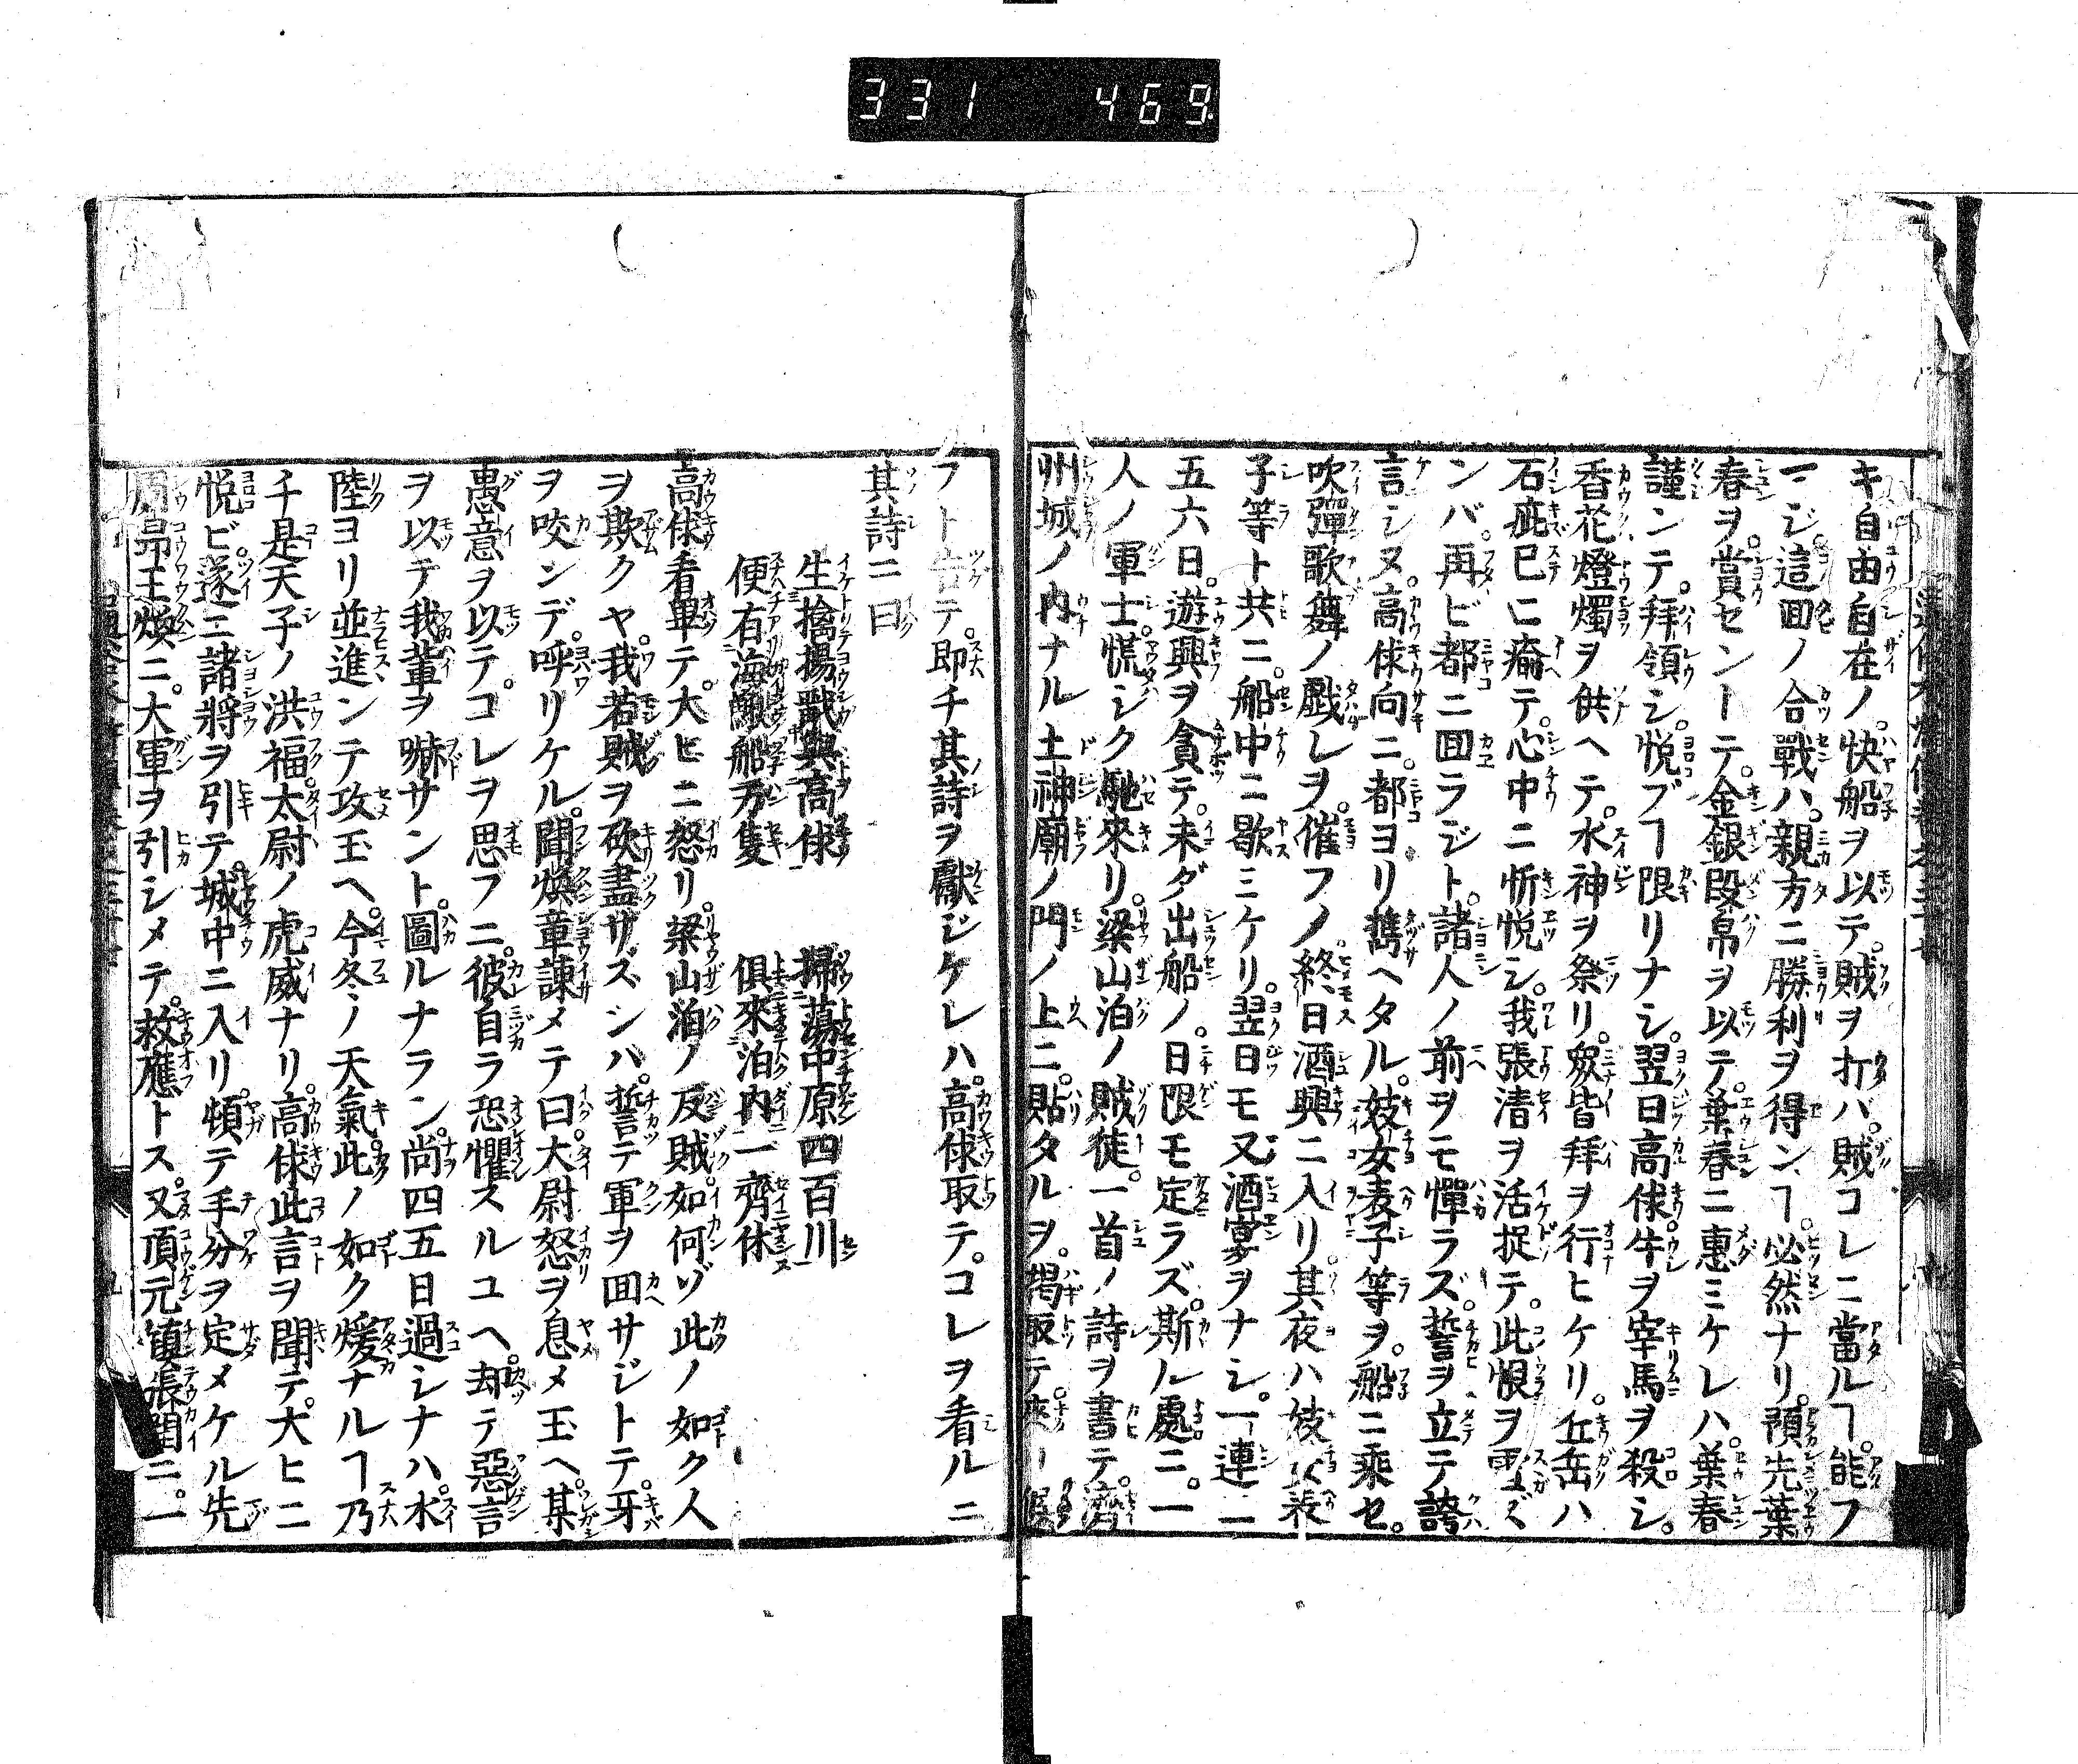 331 469
キ自由自在ノ。快船ヲ以テ。賊ヲ打バ。賊コレニ當ルヿ。能フ
マジ。這回ノ合戰ハ。親方ニ勝利ヲ得ンヿ。必然ナリ。預先葉
春ヲ。賞セントテ。金銀段帛ヲ以テ。葉春ニ惠ミケレハ。葉春
謹ンテ。拜領シ。悦ブヿ限リナシ。翌日高俅。牛ヲ宰馬ヲ殺シ。
香花燈燭ヲ供ヘテ。水神ヲ祭リ。衆皆拜ヲ行ヒケリ。丘岳ハ
石疵已ニ瘉テ。心中ニ忻悦シ。我張清ヲ活捉テ。此恨ヲ雪ズ
ンバ。再ビ都ニ囬ラジト。諸人ノ前ヲモ憚ラズ。誓ヲ立テ誇
言シヌ。高俅向ニ。都ヨリ携ヘタル。妓女表子等ヲ。船ニ乘セ。
吹彈歌舞ノ戯レヲ。催フノ。終日酒興ニ入リ。其夜ハ妓女表
子等ト共ニ。船中ニ歇ミケリ。翌日モ又酒宴ヲナシ。一連ニ
五六日。遊興ヲ貪テ。未ダ出船ノ。日限モ定ラズ。斯ル處ニ。一
人ノ軍士。慌シク馳來リ。梁山泊ノ賊徒。一首ノ詩ヲ書テ。濟
州城ノ内ナル土神廟ノ門ノ上ニ。貼タルヲ。掲取テ。來
フト告テ。即チ其詩ヲ獻ジケレハ。高俅取テ。コレヲ看ルニ
其詩ニ曰
生擒揚戩與高俅 掃蕩中原四百川
便有海鰍船万隻 俱來泊内一齊休
高俅看畢テ。大ヒニ怒リ。梁山泊ノ反賊。如何ゾ此ノ如ク人
ヲ欺クヤ。我若賊ヲ砍盡サズンバ。誓テ軍ヲ囬サジトテ。牙
ヲ咬ンデ。呼リケル。聞煥章諫メテ曰。大尉怒ヲ息メ玉ヘ。某
愚意ヲ以テ。コレヲ思フニ。彼自ラ恐懼スルユヘ。却テ惡言
ヲ以テ我輩ヲ嚇サント。圖ルナラン。尚四五日過シナハ。水
陸ヨリ並進ンテ攻玉ヘ。今冬ノ天氣。此ノ如ク煖ナルヿ乃
チ是天子ノ洪福。太尉ノ虎威ナリ。高俅此言ヲ聞テ。大ヒニ
悦ビ。遂ニ諸將ヲ引テ。城中ニ入リ。頓テ手分ヲ定メケル先
周昻王煥ニ。大軍ヲ引シメテ。救應トス。又項元鎮張開ニ。一